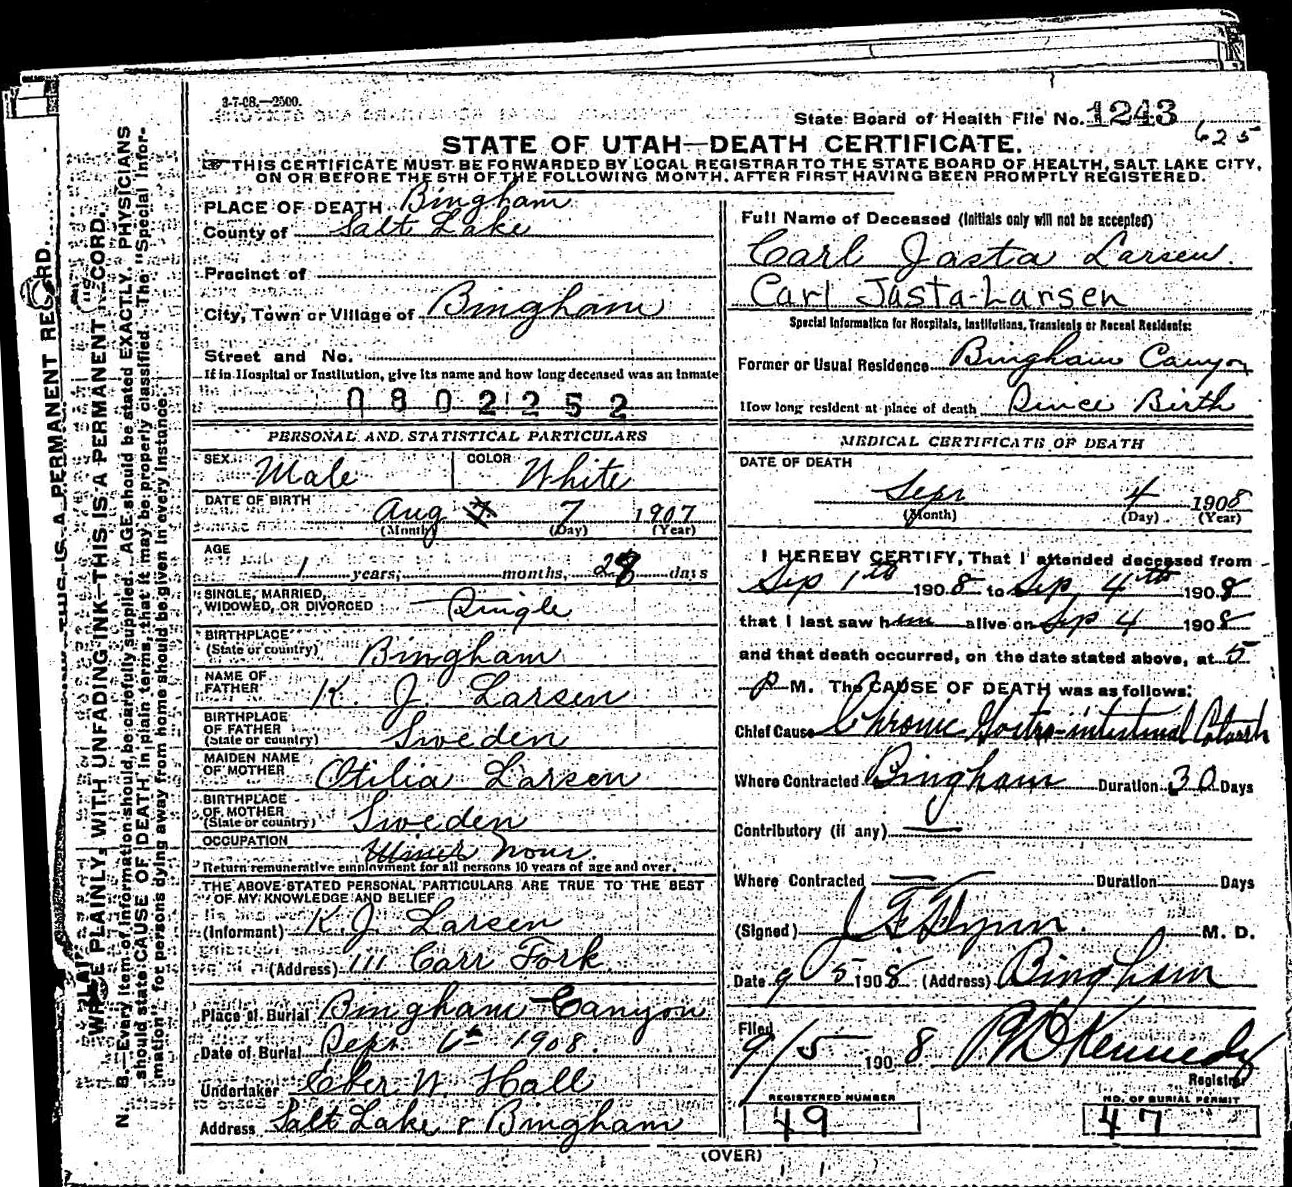 3-7-08.—2500.
State Board of Health File No. 1243
625
STATE OF UTAH—DEATH CERTIFICATE.
THIS CERTIFICATE MUST BE FORWARDED BY LOCAL REGISTRAR TO THE STATE BOARD OF HEALTH, SALT LAKE CITY,
ON OR BEFORE THE 5TH OF THE FOLLOWING MONTH, AFTER FIRST HAVING BEEN PROMPTLY REGISTERED.
PLACE OF DEATH Bingham
County of Salt Lake
Precinct of
City, Town or Village of Bingham
Street and No.
If in Hospital or Institution, give its name and how long deceased was an inmate
0802252
PERSONAL AND STATISTICAL PARTICULARS
SEX Male COLOR White
DATE OF BIRTH Aug 7 1907
(Month) (Day) (Year)
AGE 1 years, months, 28 days
SINGLE, MARRIED,
WIDOWED, OR DIVORCED Single
BIRTHPLACE
(State or country) Bingham
NAME OF
FATHER K. J. Larsen
BIRTHPLACE
OF FATHER
(State or country) Sweden
MAIDEN NAME
OF MOTHER Otilia Larsen
BIRTHPLACE
OF MOTHER
(State or country) Sweden
OCCUPATION None.
Return remunerative employment for all persons 10 years of age and over.
THE ABOVE STATED PERSONAL PARTICULARS ARE TRUE TO THE BEST
OF MY KNOWLEDGE AND BELIEF
(Informant) K. J. Larsen
(Address) 111 Carr Fork
Place of Burial Bingham Canyon
Date of Burial Sept 6th 1908.
Undertaker Eber W. Hall
Address Salt Lake & Bingham
Full Name of Deceased (Initials only will not be accepted)
Carl Jasta Larsen.
Carl Jasta-Larsen
Special Information for Hospitals, Institutions, Transients or Recent Residents:
Former or Usual Residence Bingham Canyon
How long resident at place of death Since Birth
MEDICAL CERTIFICATE OF DEATH
DATE OF DEATH
Sept 4 1908
(Month) (Day) (Year)
I HEREBY CERTIFY, That I attended deceased from
Sep 1th 1908 to Sep, 4th 1908
that I last saw him alive on Sep 4 1908
and that death occurred, on the date stated above, at 5
P M. The CAUSE OF DEATH was as follows:
Chief Cause Chronic Gastro-intestinal Catarrh
Where Contracted Bingham Duration 30 Days
Contributory (if any) —
Where Contracted — Duration Days
(Signed) J F Flynn. M. D.
Date 9 5 1908 (Address) Bingham
Filed
9/5 1908 Kennedy
Registrar
REGISTERED NUMBER
49
NO. OF BURIAL PERMIT
47
(OVER)
WRITE PLAINLY, WITH UNFADING INK—THIS IS A PERMANENT RECORD.
N. B.—Every item of information should be carefully supplied. AGE should be stated EXACTLY. PHYSICIANS
should state CAUSE OF DEATH in plain terms, that it may be properly classified. The "Special Infor-
mation" for persons dying away from home should be given in every instance.
THIS IS A PERMANENT RECORD.